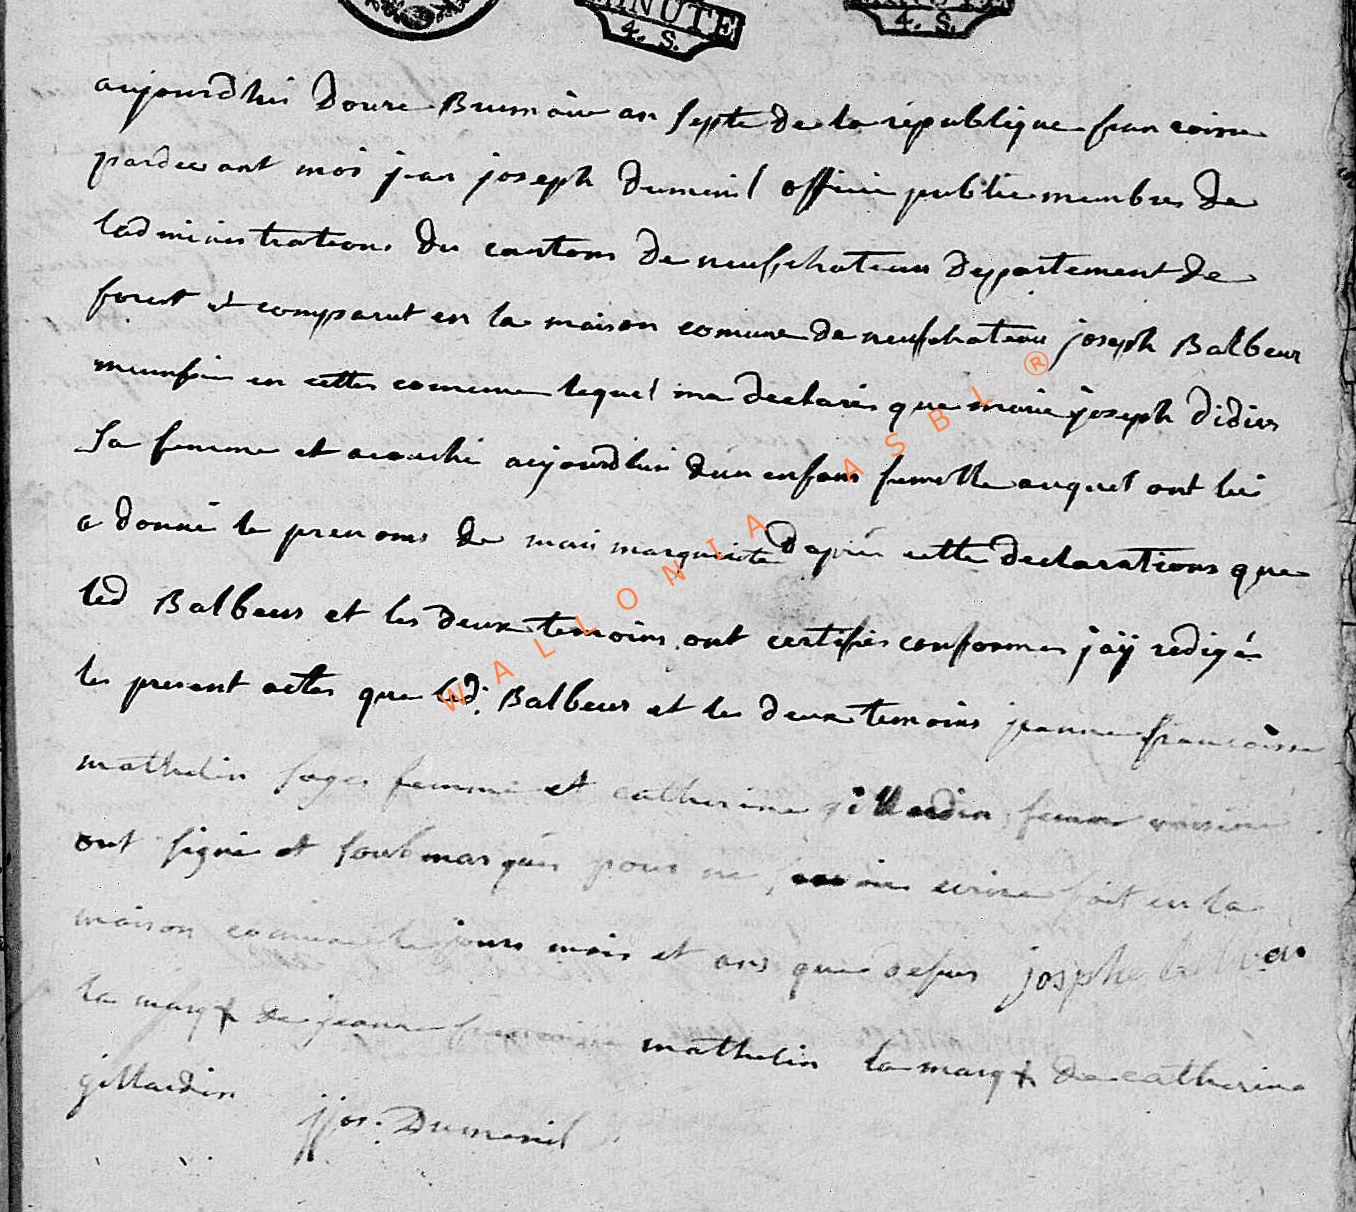 MINUTE MINUTE
4. S. 4. S.
aujourdhui Douze Brumaire an septe de la republique francoise
pardevant moi jean joseph Dumenil officier public membres de
ladministrations du cantons de neufchateau Deppartement de
forest et comparut en la maison comune de neufchateau joseph Balbeur
meunsier en cettes comeune lequel ma declarés que marie joseph Didier
sa femme et acouché aujourdhui dun enfans femelle auquel ont lui
a donné le prenoms de marie marguerite Daprés cette declarations que
led Balbeur et les deux temoins ont certifiés conformes jaÿ redigés
les present actes que led. Balbeur et les deux temoins jeanne francoisse
mathelin sages femme et catherine gillardin femme voisine
ont signé et soubmarqués pour ne ecrire fait en la
maison comune le jours mois et ans que desus josphe
la marq + de jeanne francoise mathelin la marq + de catherine
gillardin jjos. Dumenil
WALLONIA ASBL ®